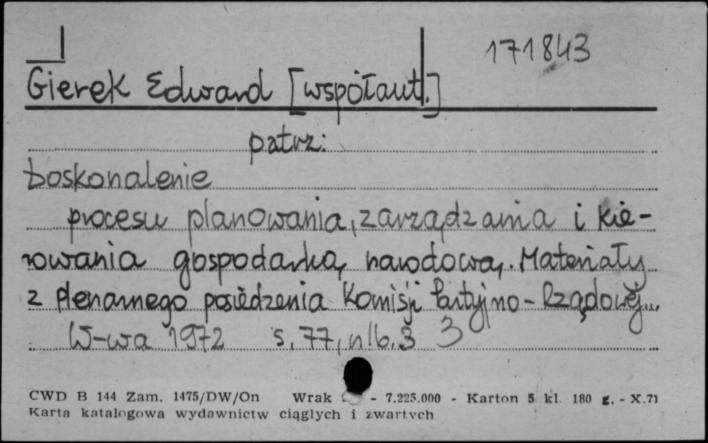 171843
Gierek Edward [współaut.]
patrz:
Doskonalenie
procesu planowania, zarządzania i kie-
rowania gospodarką narodową. Materiały
z plenarnego posiedzenia Komisji Partyjno-Rządowej.
W-wa 1972 s. 77, nlb. 3 3
CWD B 144 Zam. 1475/DW/On Wrak - 7.225.000 - Karton 5 kl. 180 g. - X.71
Karta katalogowa wydawnictw ciągłych i zwartych